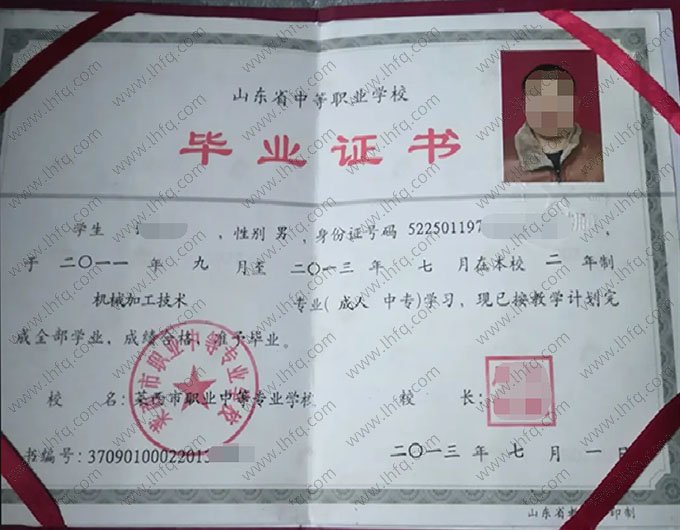 山东省中等职业学校
毕业证书
学生 ,性别 男 ,身份证号码 522501197 ,
于 二〇一一 年 九 月至 二〇一三 年 七 月在本校 二 年制
机械加工技术 专业( 成人 中专)学习,现已按教学计划完
成全部学业,成绩合格,准予毕业。
莱西市职业中等专业学校
校 名:莱西市职业中等专业学校 校 长:
书编号:37090100022015 二〇一三 年 七 月 一 日
山东省 印制
www.lhfq.com